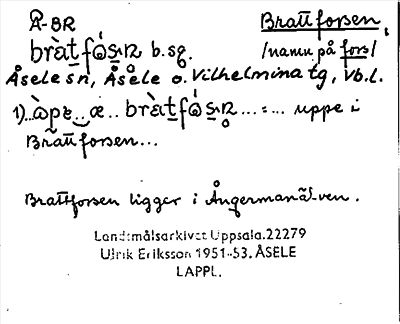 Å-BR
Brattforsen,
bràt̲fǫ́s̲ın̥ b.sg.
/namn på fors/
Åsele sn, Åsele o. Vilhelmina tg, Vb.l.
1)... æ .. bràt̲fǫ́s̲ın̥ ...=... uppe i
Brattforsen...
Brattforsen ligger i Ångermanälven.
Landsmålsarkivet Uppsala. 22279
Ulrik Eriksson 1951-53. ÅSELE
LAPPL.